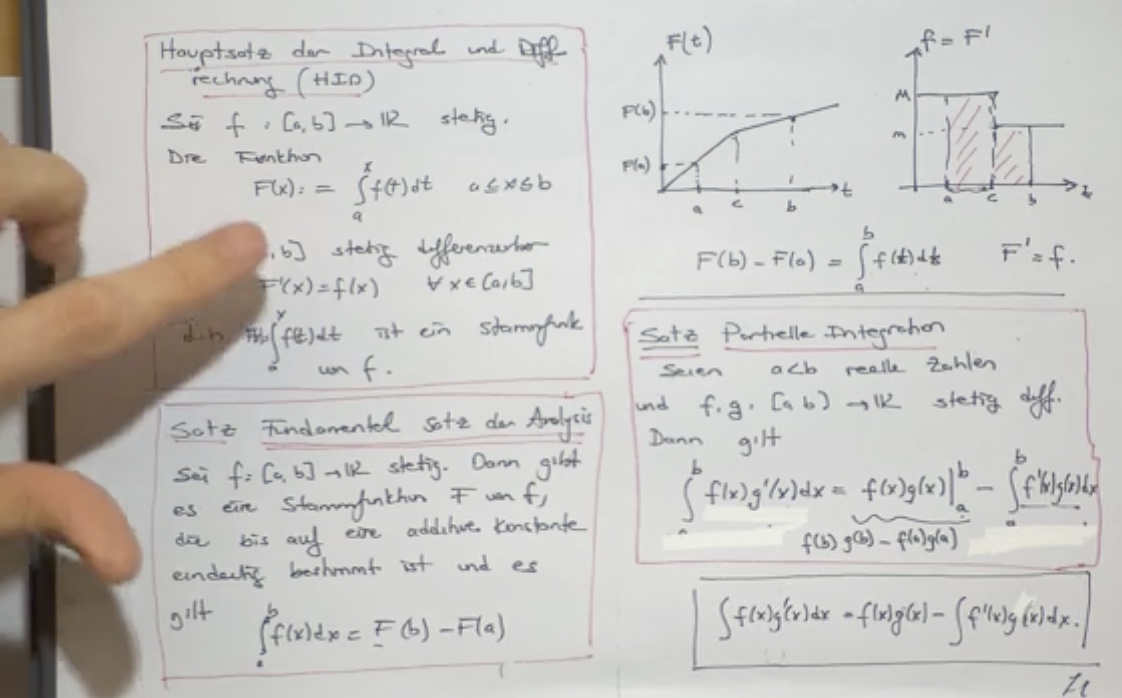 Hauptsatz der Integral und Diff
rechnung (HID)
Sei f : [a,b] → ℝ stetig.
Die Funktion
F(x) := ∫ₐˣ f(t)dt a ≤ x ≤ b
, b] stetig differenzierbar
F'(x) = f(x) ∀ x ∈ [a,b]
d.h. ∫ₐˣ f(t)dt ist ein Stammfunk
von f.
Satz Fundamental Satz der Analysis
Sei f: [a,b] → ℝ stetig. Dann gibt
es eine Stammfunktion F von f,
die bis auf eine additive Konstante
eindeutig bestimmt ist und es
gilt ∫ₐᵇ f(x)dx = F(b) - F(a)
F(t)
F(b)
F(a)
a c b t
f = F'
M
m
a c b t
F(b) - F(a) = ∫ₐᵇ f(t)dt F' = f.
Satz Partielle Integration
Seien a<b reelle Zahlen
und f.g. [a b] → ℝ stetig diff.
Dann gilt
∫ₐᵇ f(x)g'(x)dx = f(x)g(x)|ₐᵇ - ∫ₐᵇ f'(x)g(x)dx
f(b)g(b) - f(a)g(a)
∫ f(x)g'(x)dx = f(x)g(x) - ∫ f'(x)g(x)dx.